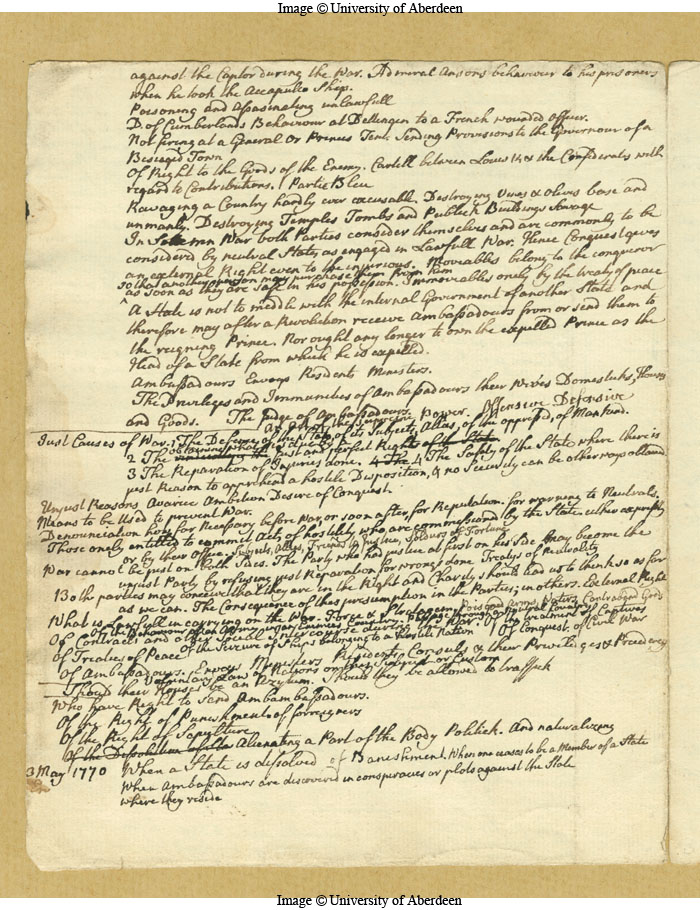 Image © University of Aberdeen
against the Captor during the War. Admiral Ansons behaviour to his prisoners
when he took the Accapulco Ship.
Poisoning and Assassinating unlawfull
D. of Cumberlands Behaviour at Dettingen to a French wounded officer.
Not firing at a General Or Princes Tent. Sending Provisions to the Governour of a
Besieged Town
Of Right to the Goods of the Enemy. Cartell between Louis 14 & the Confederates with
regard to Contributions. Partie Bleu
Ravaging a Country hardly ever excusable. Destroying Vines & Olives base and
unmanly. Destroying Temples Tombs and Publick Buildings Savage
In Solemn War both Parties consider themselves and are commonly to be
considered by neutral States as engaged in Lawfull War. Hence Conquest gives
an external Right even to the injurious. Moveables belong to the conqueror
so that another person may purchase them from him
as soon as they are safe in his possession. Immoveables onely by the treaty of peace
A State is not to meddle with the internal Government of another State and
therefore may after a Revolution receive Ambassadours from or send them to
the reigning Prince. Nor ought any longer to own the expelled Prince as the
Head of a State from which he is expelled.
Ambassadours Envoys Residents Ministers.
The Priviledges and Immunities of Ambassadours their Wives Domesticks, Houses
and Goods. The Judge of Ambassadours.
the supreme Power. Offensive Defensive
Just Causes of War. 1 The Defence of the State, of its Subjects, Allies, of the oppressed, of Mankind.
2 The obtaining what is due by just and perfect Right
3 The Reparation of Injuries done. 4 The 4 The Safety of the State where there is
just Reason to apprehend a hostile Disposition, & no Security can be otherways obtained
Unjust Reasons Avarice Ambition Desire of Conquest.
Means to be Used to prevent War.
Denounciation how far Necessary before War, or soon after, for Reputation. for warning to Neutrals.
Those onely entitled to commit Acts of hostility who are commissioned by the State either expressly
or by their office. Subjects, Allys, Friends in Justice, Soldiers of Fortune
War cannot be just on Both Sides. The Party who had justice at first on his side May become the
unjust Party by refusing just Reparation for wrongs done Treatys of Neutrality
Both parties may conceive that they are in the Right and Charity should lead us to think so as far
as we can. The Consequence of this presumption in the Parties; in others. External Right
What is Lawfull in carrying on the War. Force & Stratagem Poisoned Arms, Waters, Contraband Goods
Of Contracts and other Speciall Intercourse during the War. Of the treatment of Captives
Of Treaties of Peace Of the Seizure of Ships belonging to a hostile Nation Of Conquest. of Civil War
Of Ambassadours. Envoys Ministers Residents, Consuls & their Priviledges & Precedency
Voluntary Law of Nations or that by Custom
Should their Houses be an Asylum. Should they be allowed to traffick
Who have Right to send Ambassadours.
Of the Right of Punishment of foreigners
Of the Right of Sepulture
Of the Dissolution of Alienating a Part of the Body Politick. And naturalizing
3 May 1770 When a State is disolved of Banishment. When one ceases to be a Member of a State
When Ambassadours are discovered in conspiracies or plots against the State
where they reside
Image © University of Aberdeen